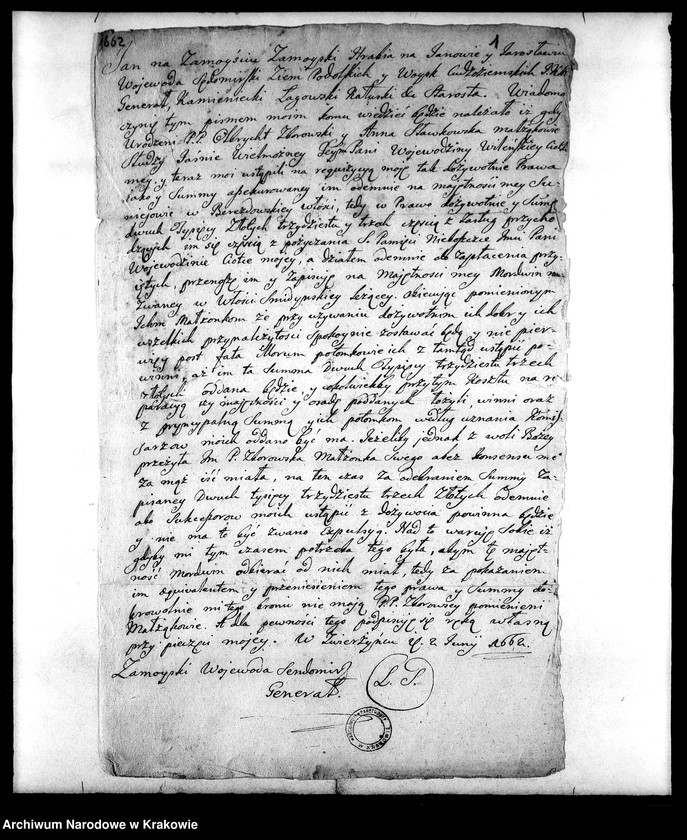 1662
1
Jan na Zamoyściu Zamoyski Hrabia na Janowie y Jarosławiu
Wojewoda Sędomirski Ziem Podolskich y Woysk Cudzoziemskich
Generał, Kamieniecki Kałuski & Starosta. Wiadomo
czynię tym pismem moim komu wiedzieć będzie należało iż gdy
Urodzeni P.P. Olbrycht Zborowski y Anna Sławkowska małżąkowie
Słudzy Jaśnie Wielmożney Jeym Pani Wojewodziny Wileńskiey Ciotki
mey y teraz moi ustąpili na requizycyą moję tak Dożywotnie Prawa
iako y Summy im odemnie na majętności mey
w włości, tedy w Prawo dożywotnie y Summę
dwuch Tysięcy Złotych trzydziestu y trzech częścią z łasky przycho
dzących im się częścią z pożyczania S. Pamięci Nieboszce Imci Pani
Wojewodzinie Ciotce mojey, a działem odemnie do zapłacenia przy-
iętych, przenoszę im y zapisuję na Majętności mey Mordwin na-
zwaney w Włości Smidyńskiey leżącey. obiecując pomienionym
Ichm Małżonkom że przy używaniu dożywotnim ich dobr y ich
wszelkich przynależytości spokoynie zostawać będą y nie pier-
wszy post fata Illorum potomkowie ich z tamtąd ustąpić po-
winni, aż im ta Summa Dwuch Tysięcy trzydziestu trzech
złotych oddana będzie, y cokolwiekby przytym kosztu na re
paracyą tey majętności y osadę poddanych łożyli, winni oraz
z pryncypalną Summą y ich potomkom według uznania Komis-
sarzow moich oddano być ma. Jeżeliby jednak z woli Bożey
przeżyła Jm P. Zborowska Małżonka swego a bez konsensu me°
za mąż iść miała, na ten czas za odebraniem Summy za-
pisaney Dwuch tysięcy trzydziestu trzech Złotych odemnie
abo Sukcessorow moich ustąpić z Dożywocia powinna będzie
y nie ma to być zwano Expulsyą. Nad to waruję Sobie iż
gdyby mi tym czasem potrzeba tego była, abym tę majęt-
ność Mordwin odbierać od nich miał, tedy za pokazaniem
im æquivalentem y przeniesieniem tego prawa y Summy do-
browolnie mi tego bronić nie mają P.P. Zborowscy pomienieni
Małżąkowie. A dla pewności tego podpisuję się ręką własną
przy pieczęci mojey. W Zwierzyńcu d. 2 Junij 1662.
Zamoyski Wojewoda Sendomir
Generał.
L. S.
Archiwum Narodowe w Krakowie